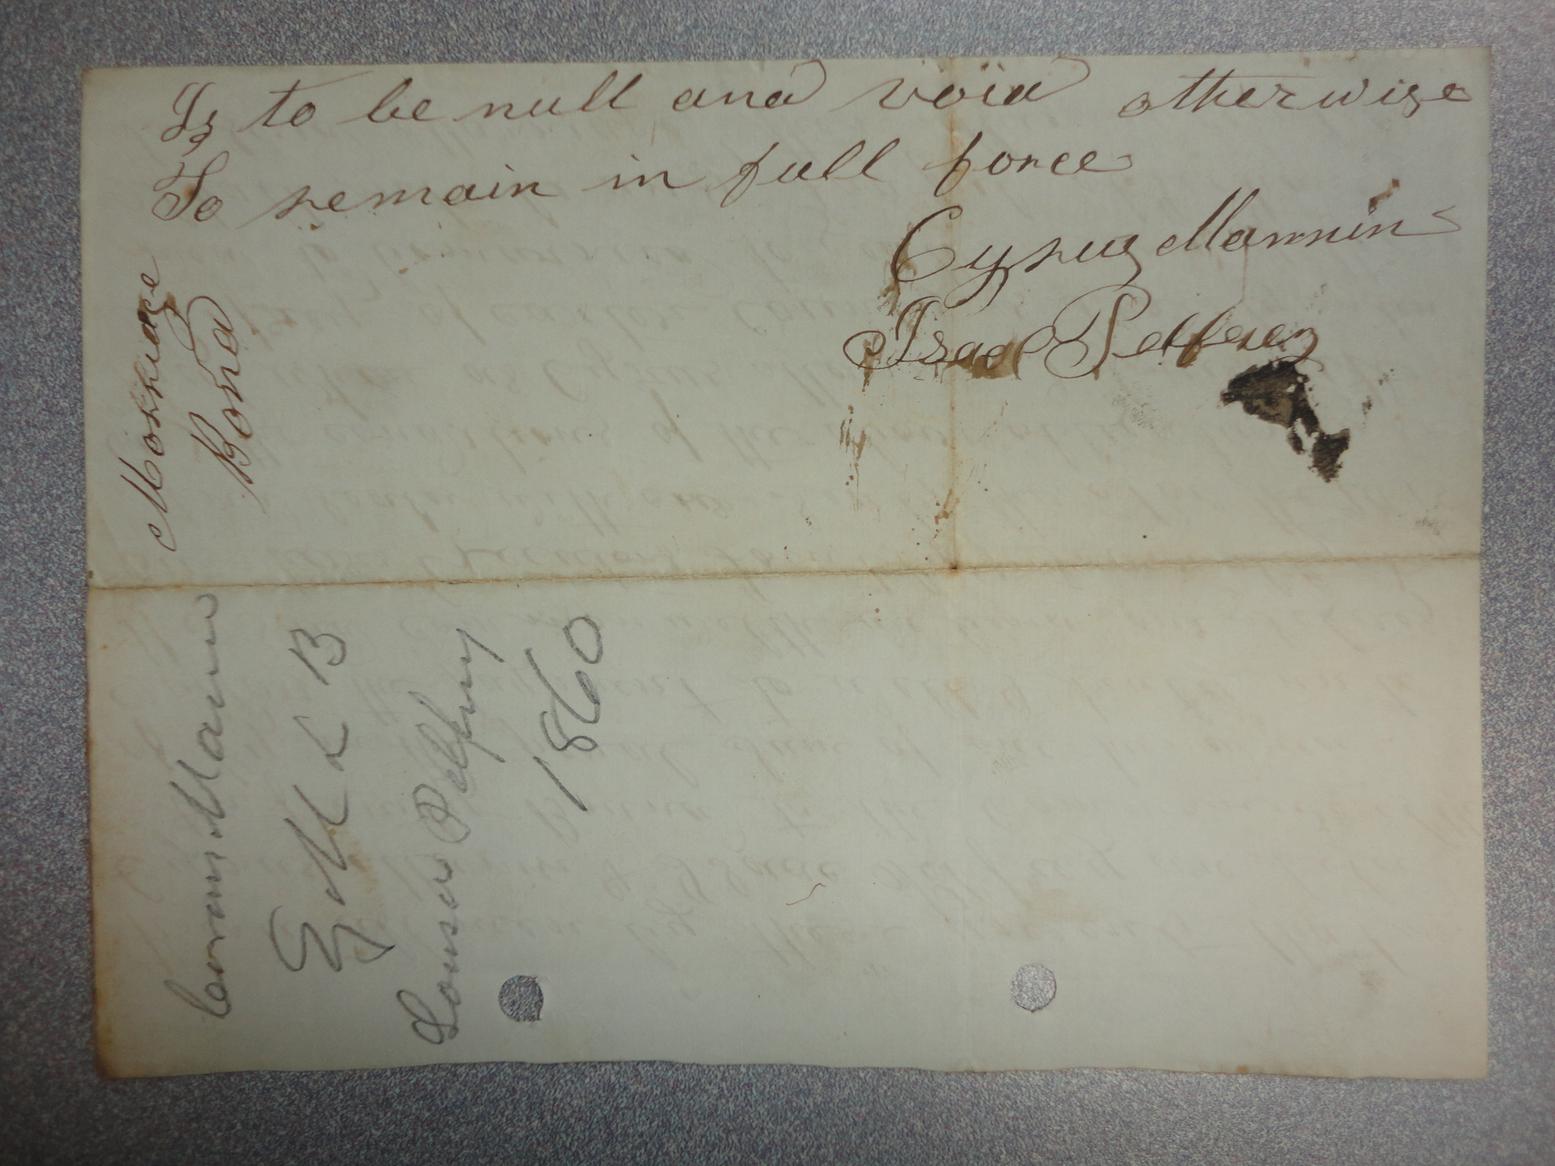 Is to be null and void otherwise
To remain in full force
Cyrus Mannin
Isaac Pelfrey
Marriage
Bond
Mannin
& M L B
Louisa Pelfrey
1860